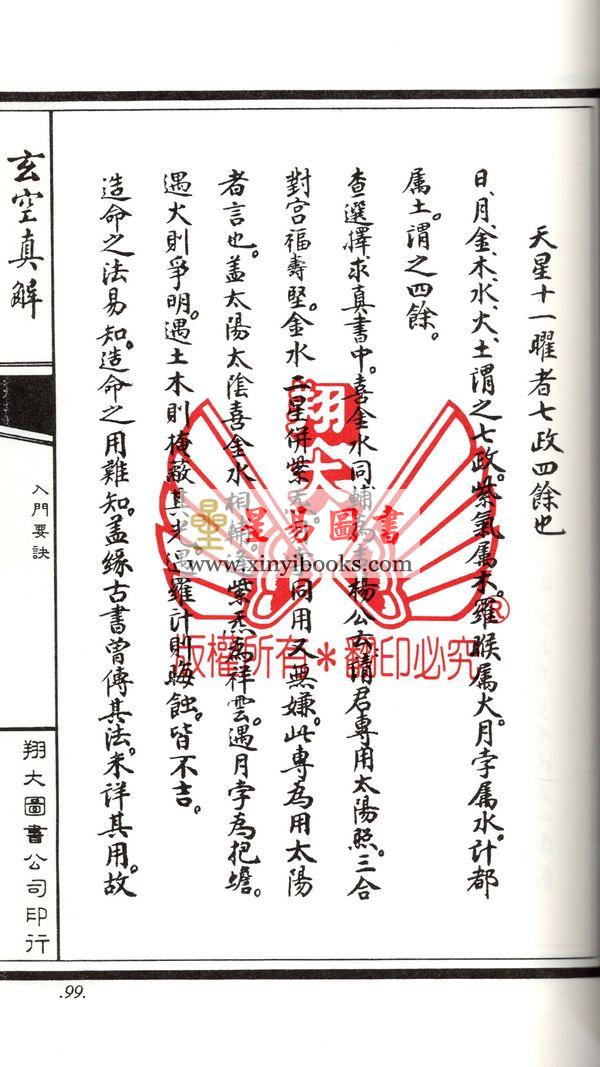 天星十一曜者七政四餘也
日、月、金、木、水、火、土謂之七政。紫氣属木。羅睺属火。月孛属水。計都
属土。謂之四餘。
查選擇求真書中。喜金水同輔為楊公云請君專用太陽照。三合
對宮福壽堅。金水二星併紫同用又無嫌。此專為用太陽
者言也。蓋太陽太陰喜金水相輔紫炁為祥雲。遇月孛為抱蟾。
遇火則爭明。遇土木則掩蔽其光遇羅計則晦蝕。皆不吉。
造命之法易知。造命之用難知。蓋緣古書曾傳其法。未詳其用。故
玄空真解
入門要訣
翔大圖書公司印行
.99.
翔大
星易圖書
www.xinyibooks.com
®
版權所有＊翻印必究